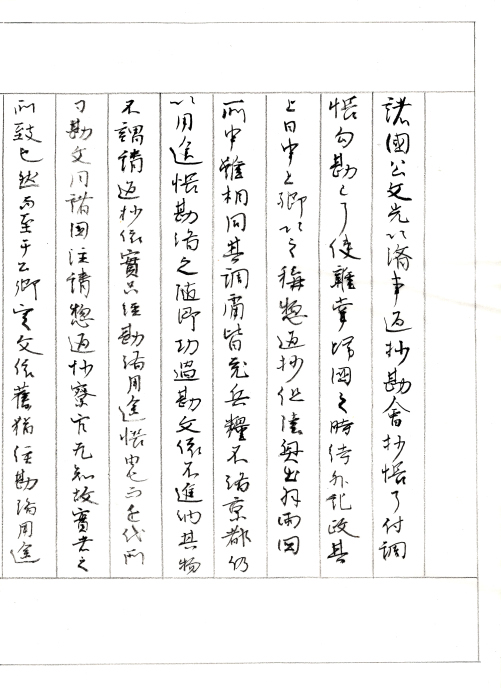 諸國公文先以済事返抄勘會抄帳了付調
帳勾勘之了使雜掌歸國之時待外記政其
上日申上卿以之稱惣返抄但陸奥出羽両国
所申雖相同其調庸皆充兵糧不済京都仍
以用途帳勘済之随即功過勘文依不進納其物
不謂請返抄依實只注勘済用途帳也而近代所
司勘文同諸國注請惣返抄寮官无知故實者之
所致也然而至于公卿定文依舊猶注勘済用途